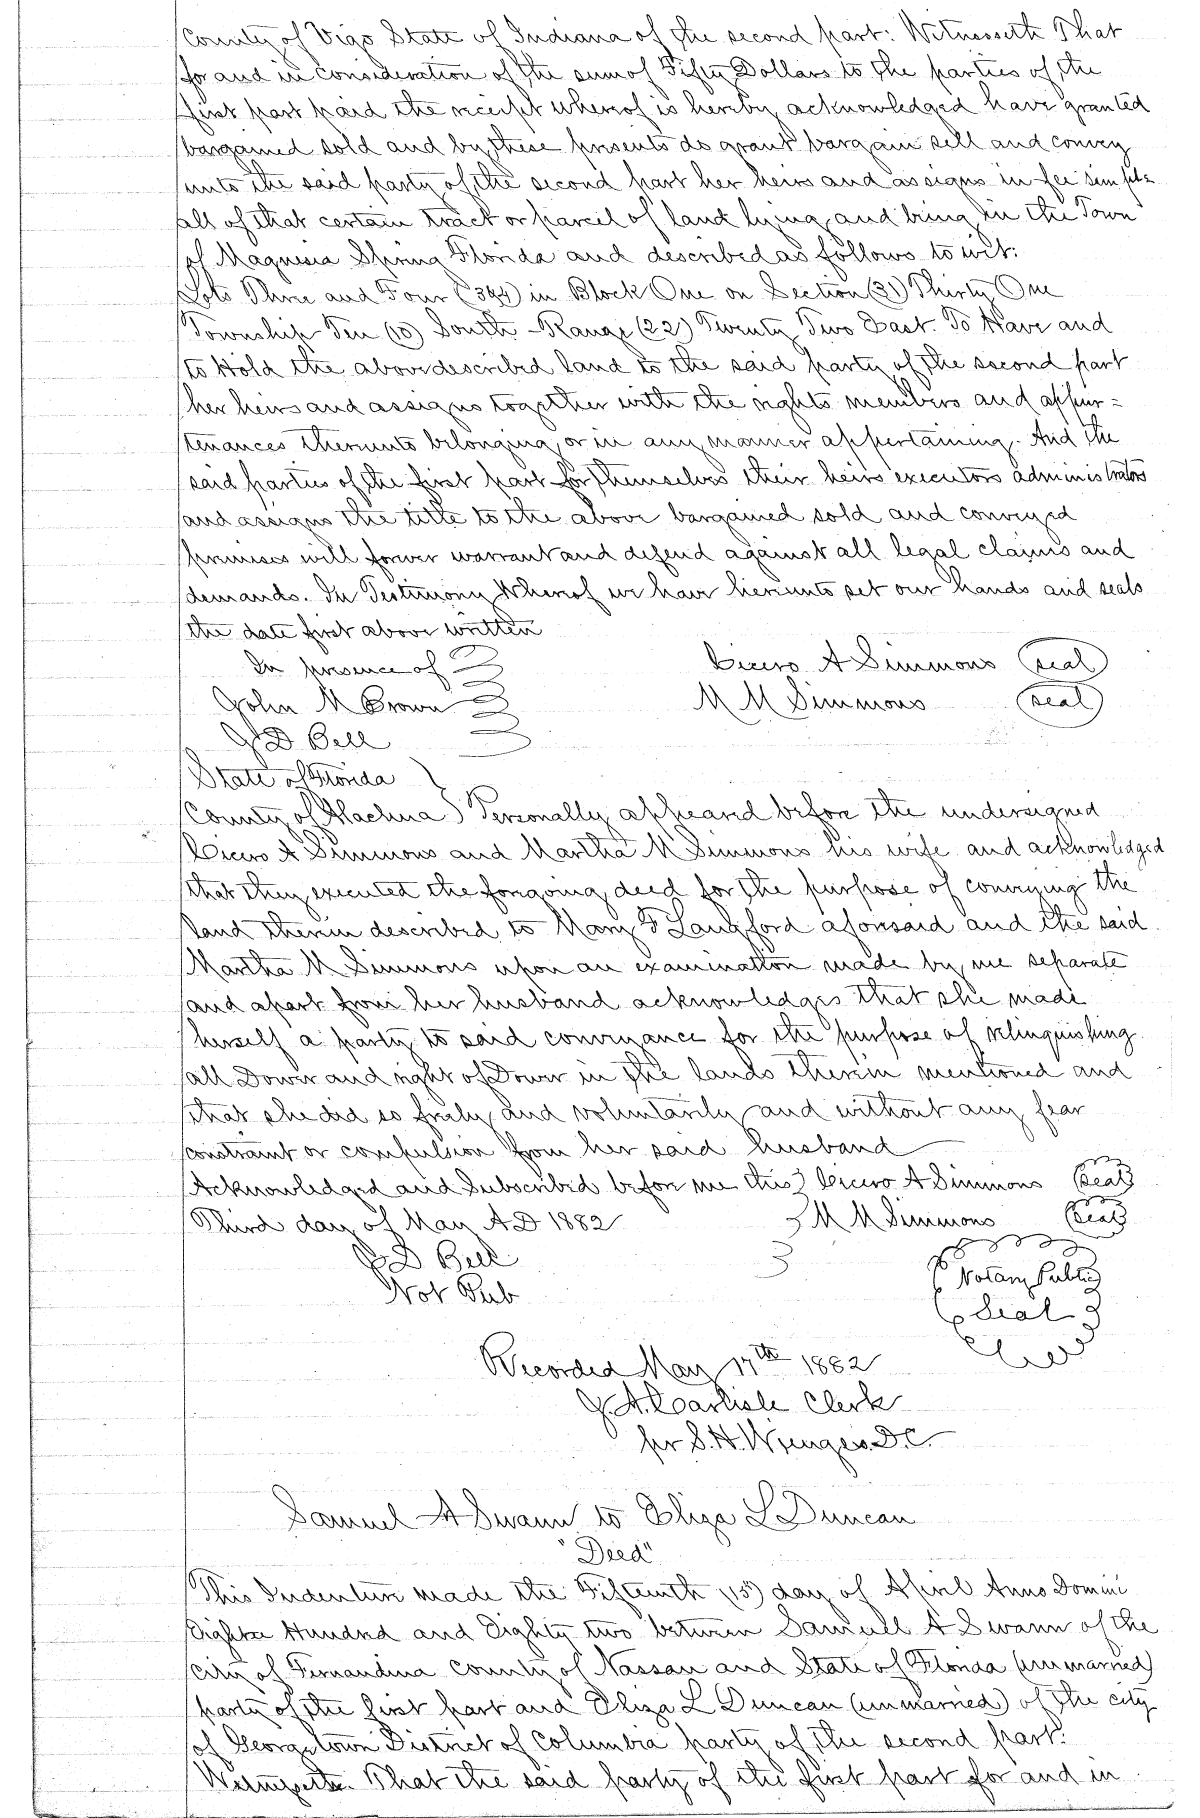 County of Vigo State of Indiana of the second part: Witnesseth That
for and in consideration of the sum of Fifty Dollars to the parties of the
first part paid the receipt whereof is hereby acknowledged have granted
bargained sold and by these presents do grant bargain sell and convey
unto the said party of the second part her heirs and assigns in fee simple
all of that certain tract or parcel of land lying and being in the Town
of Magnesia Spring Florida and described as follows to wit:
Lots Three and Four (3&4) in Block One on Section (31) Thirty One
Township Ten (10) South - Range (22) Twenty Two East. To Have and
to Hold the above described land to the said party of the second part
her heirs and assigns together with the rights members and appur=
tenances thereunto belonging or in any manner appertaining. And the
said parties of the first part for themselves their heirs executors administrators
and assigns the title to the above bargained sold and conveyed
premises will forever warrant and defend against all legal claims and
demands. In Testimony Whereof we have hereunto set our hands and seals
the date first above written
In presence of Cicero A Simmons (seal)
John M Brown M M Simmons (seal)
J D Bell
State of Florida
County of Alachua) Personally appeared before the undersigned
Cicero A Simmons and Martha M Simmons his wife and acknowledged
that they executed the foregoing deed for the purpose of conveying the
land therein described to Mary F Langford aforesaid and the said
Martha M Simmons upon an examination made by me separate
and apart from her husband acknowledges that she made
herself a party to said conveyance for the purpose of relinquishing
all Dower and right of Dower in the lands therein mentioned and
that she did so freely and voluntarily and without any fear
constraint or compulsion from her said husband
Acknowledged and Subscribed before me this } Cicero A Simmons (Seal)
Third day of May A.D 1882 } M M Simmons (Seal)
J D Bell
Not Pub
Notary Public
Seal
Recorded May 17th 1882
J. A. Carlisle Clerk
per S. H. D.C.
Samuel A Swann to Eliza L Duncan
"Deed"
This Indenture made the Fifteenth (15) day of April Anno Domini
Eighteen Hundred and Eighty two between Samuell A Swann of the
City of Fernandina County of Nassau and State of Florida (unmarried)
party of the first part and Eliza L Duncan (unmarried) of the city
of Georgetown District of Columbia party of the second part:
Witnesseth. That the said party of the first part for and in